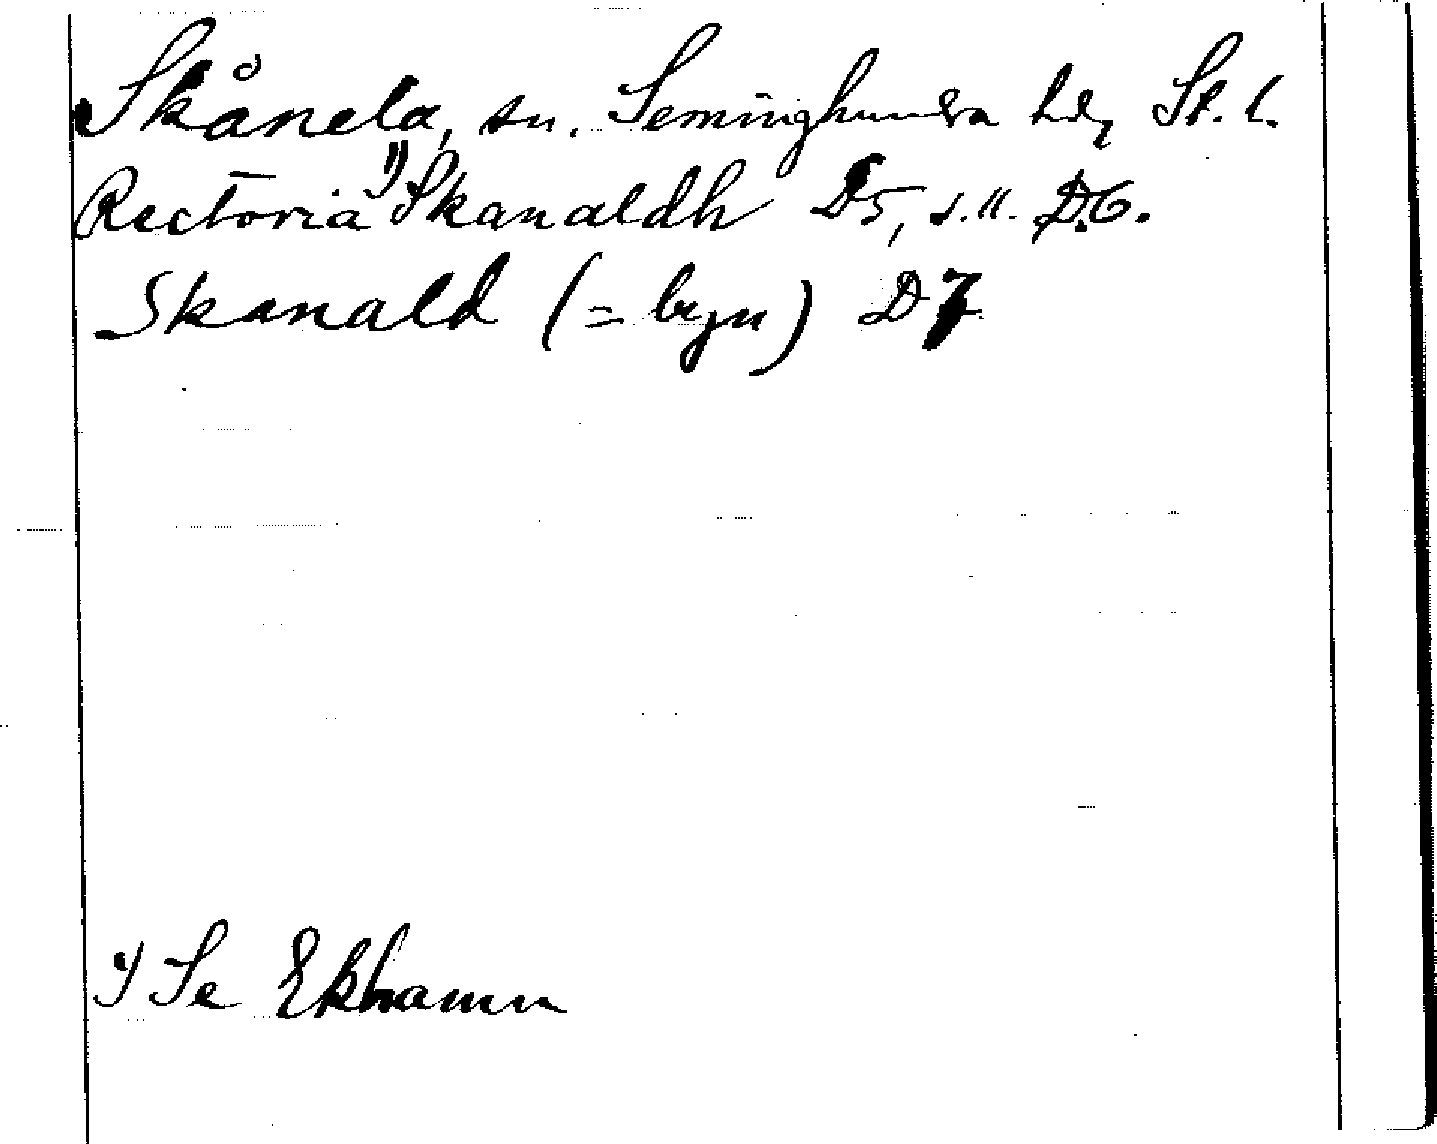 Skånela, sn. Seminghundra hd, St. l.
Rectoria ¹⁾ Skanaldh D5, s.11. D6.
Skanald (= byn) D7
¹⁾ Se Ekhamn